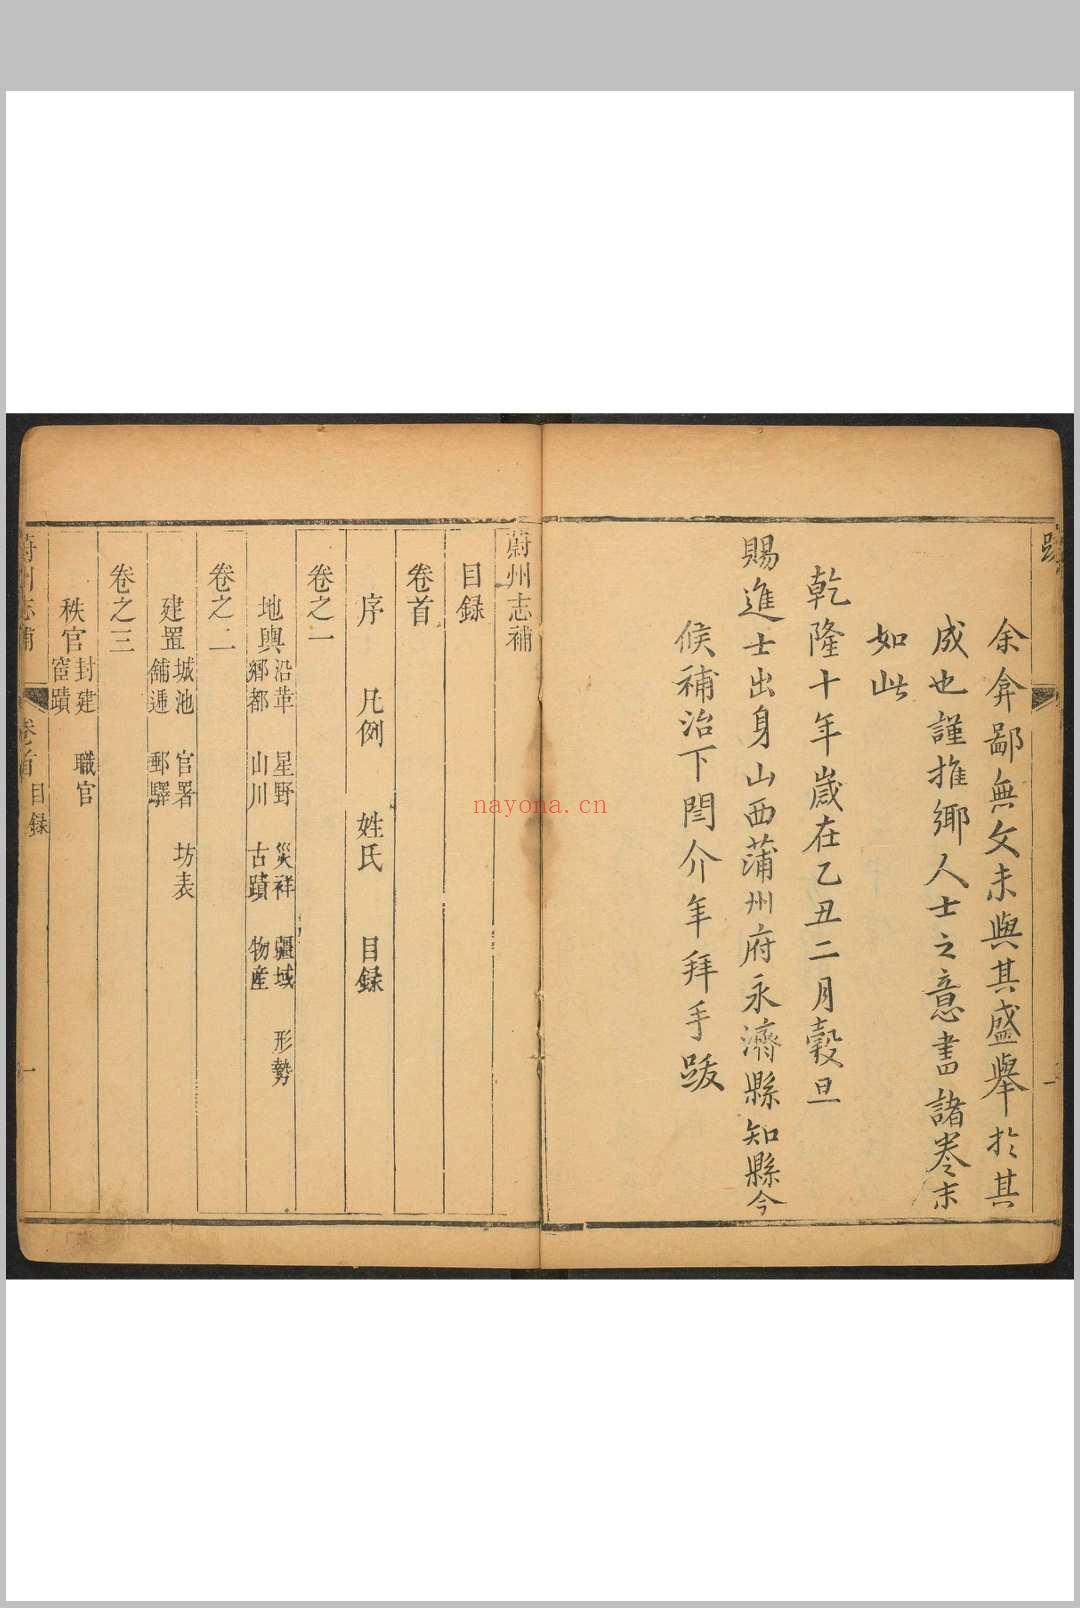 跋
余弇鄙無文未與其盛舉於其
成也謹推鄉人士之意書諸卷末
如此
乾隆十年歲在乙丑二月穀旦
賜進士出身山西蒲州府永濟縣知縣今
候補治下閆介年拜手跋
一
蔚州志補
目録
卷首
序 凡例 姓氏 目録
卷之一
地輿 沿革 星野 災祥 疆域 形勢
鄉都 山川 古蹟 物産
卷之二
建置 城池 官署 坊表
舖逓 郵驛
卷之三
秩官 封建 職官
宦蹟
蔚州志補 卷首 目録 一
nayona.cn